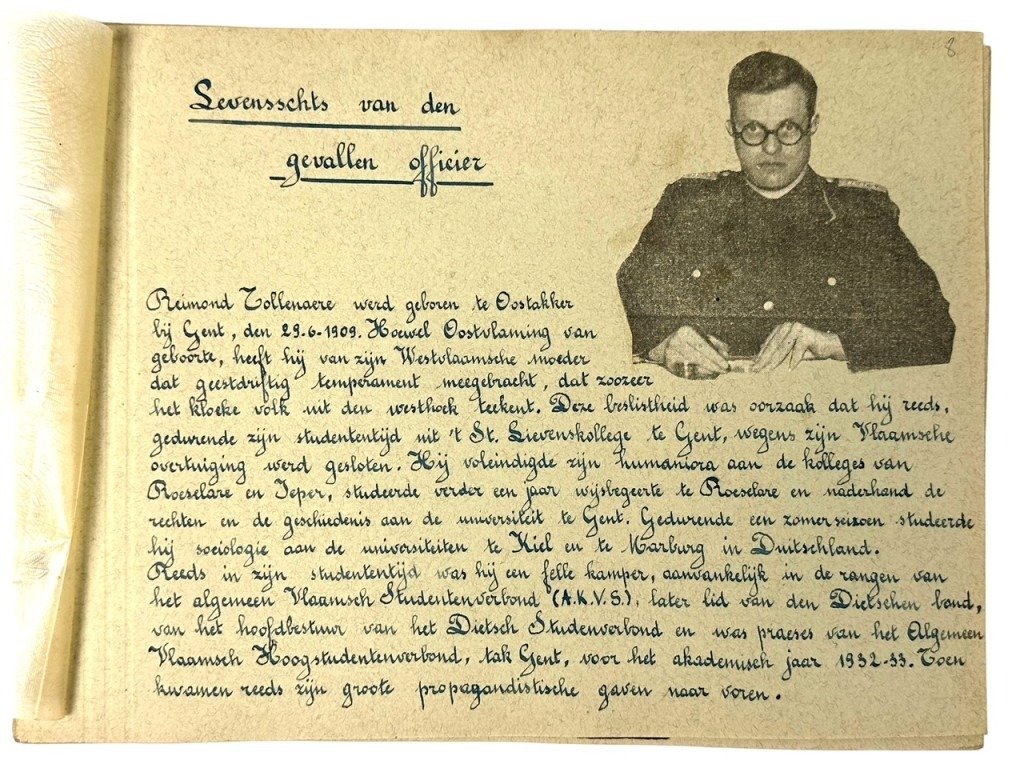 8
Levensschts van den
gevallen officier
Reimond Tollenaere werd geboren te Oostakker
bij Gent, den 29-6-1909. Hoewel Oostvlaming van
geboorte, heeft hij van zijn Westvlaamsche moeder
dat geestdriftig temperament meegebracht, dat zoozeer
het kloeke volk uit den westhoek teekent. Deze beslistheid was oorzaak dat hij reeds,
gedurende zijn studententijd uit 't St. Lievenskollege te Gent, wegens zijn Vlaamsche
overtuiging werd gesloten. Hij voleindigde zijn humaniora aan de kolleges van
Roeselare en Ieper, studeerde verder een jaar wijsbegeerte te Roeselare en naderhand de
rechten en de geschiedenis aan de universiteit te Gent. Gedurende een zomerseizoen studeerde
hij sociologie aan de universiteiten te Kiel en te Marburg in Duitschland.
Reeds in zijn studententijd was hij een felle kamper, aanvankelijk in de rangen van
het algemeen Vlaamsch Studentenverbond (A.K.V.S.), later lid van den Dietschen bond,
van het hoofdbestuur van het Dietsch Studenverbond en was praeses van het Algemeen
Vlaamsch Hoogstudentenverbond, tak Gent, voor het akademisch jaar 1932-33. Toen
kwamen reeds zijn groote propagandistische gaven naar voren.